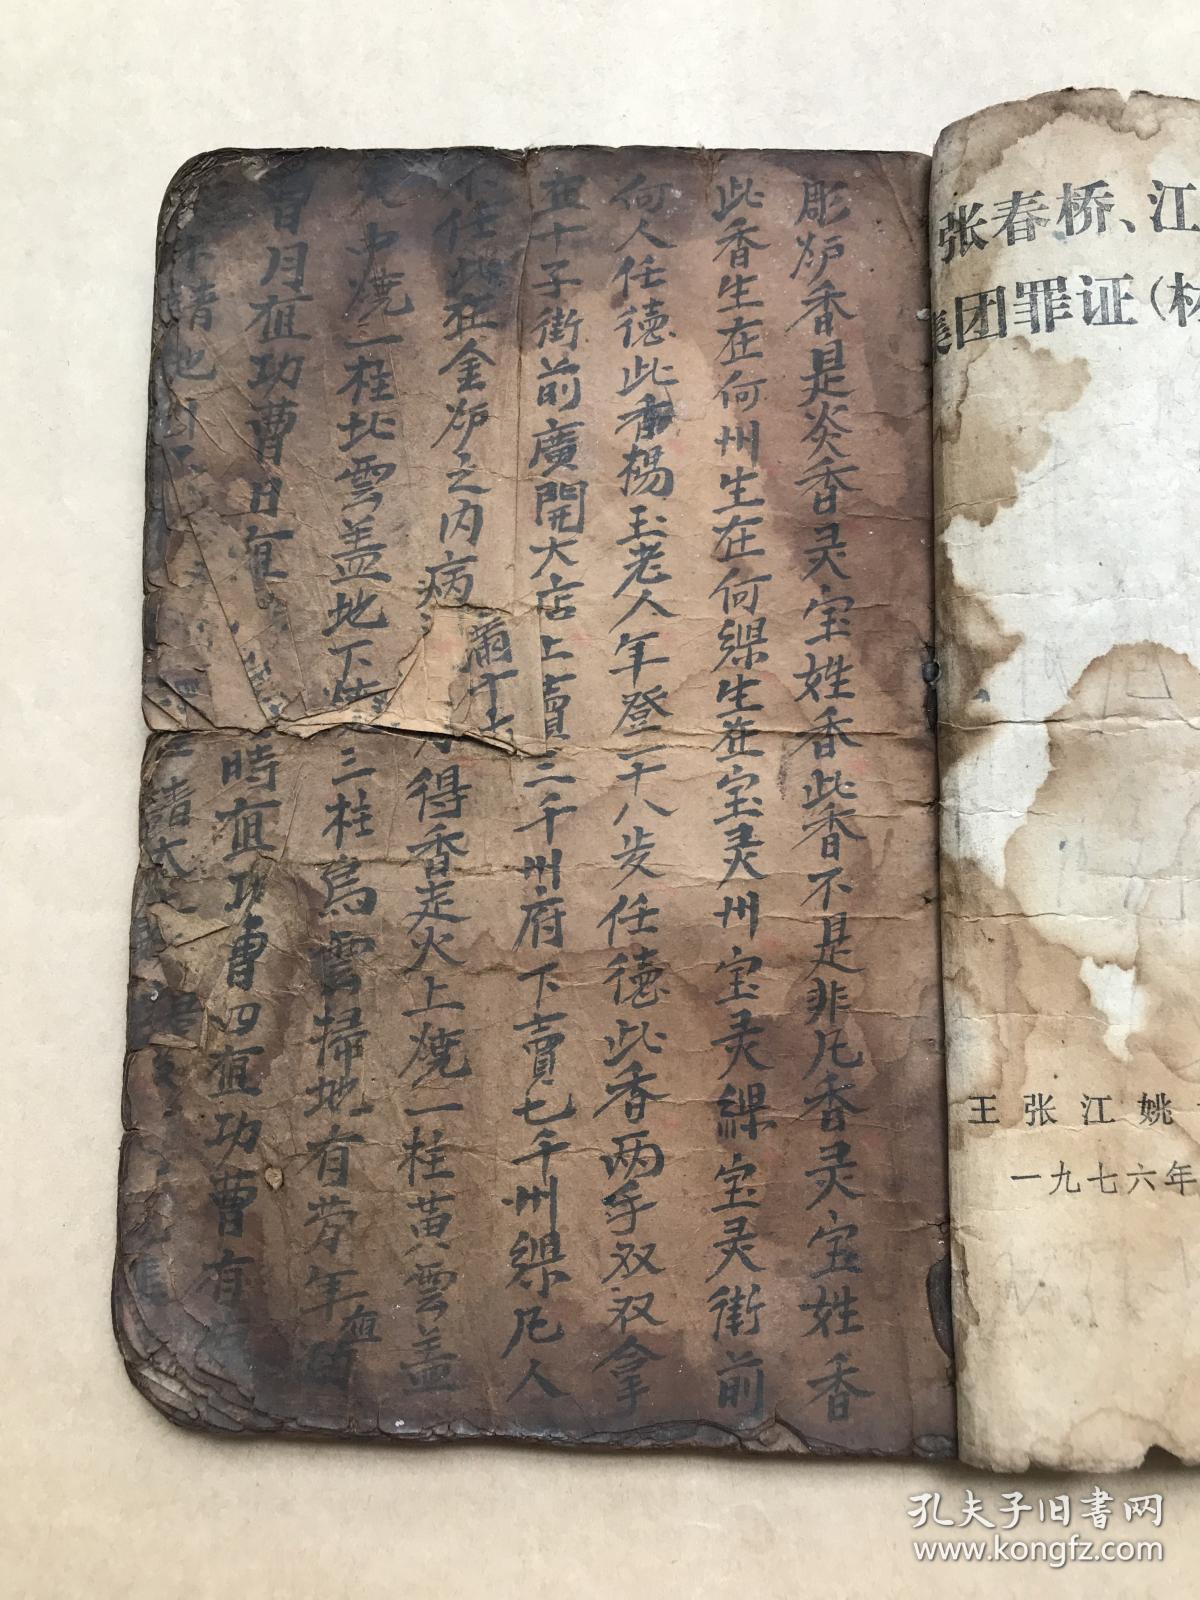 彫炉香是炎香灵宝姓香此香不是非凡香灵宝姓香
此香生在何州生在何縣生在宝灵州宝灵縣宝灵街前
何人任德此香楊玉老人年登一十八岁任德此香两手双双拿
在十子街前廣開大店上賣三千州府下賣七千州縣凡人
不任此在金炉之内病
得香走火上燒一柱黄雲盖
中燒一柱北雲盖地下燒三柱烏雲掃地有劳年
月值功曹日值時值功曹四值功曹有
請
請
張春桥、江
集团罪证（材
王张江姚
一九七六年
孔夫子旧书网
www.kongfz.com